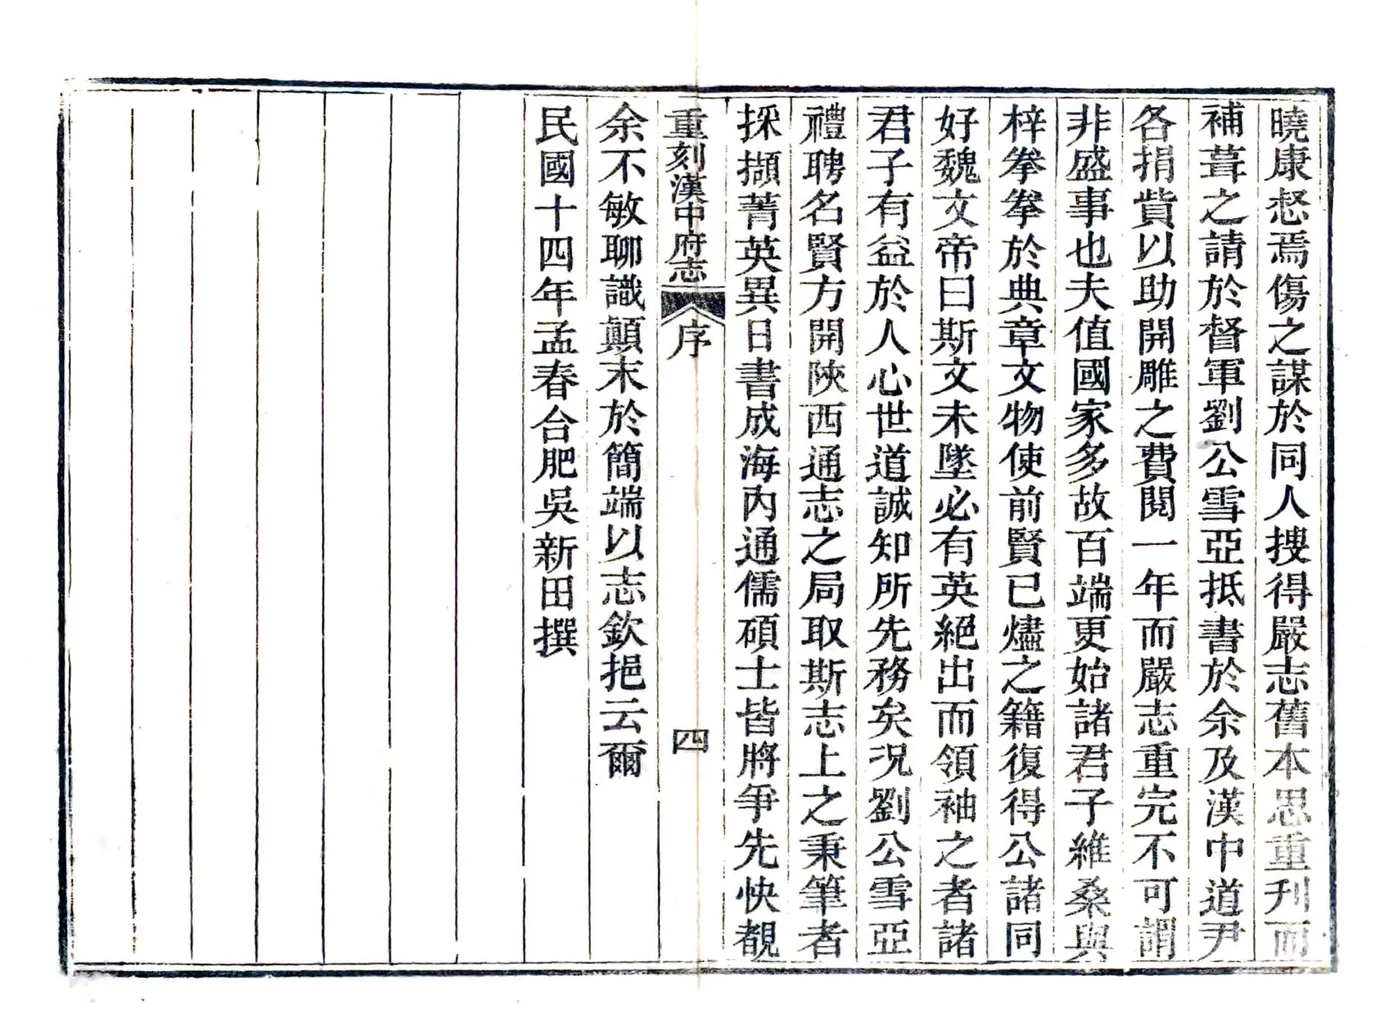 曉康惄焉傷之謀於同人搜得嚴志舊本思重刊而
補葺之請於督軍劉公雪亞抵書於余及漢中道尹
各捐貲以助開雕之費閱一年而嚴志重完不可謂
非盛事也夫值國家多故百端更始諸君子維桑與
梓拳拳於典章文物使前賢已燼之籍復得公諸同
好魏文帝曰斯文未墜必有英絕出而領袖之者諸
君子有益於人心世道誠知所先務矣况劉公雪亞
禮聘名賢方開陝西通志之局取斯志上之秉筆者
採擷菁英異日書成海內通儒碩士皆將爭先快覩
重刻漢中府志 序 四
余不敏聊識顛末於簡端以志欽挹云爾
民國十四年孟春合肥吳新田撰